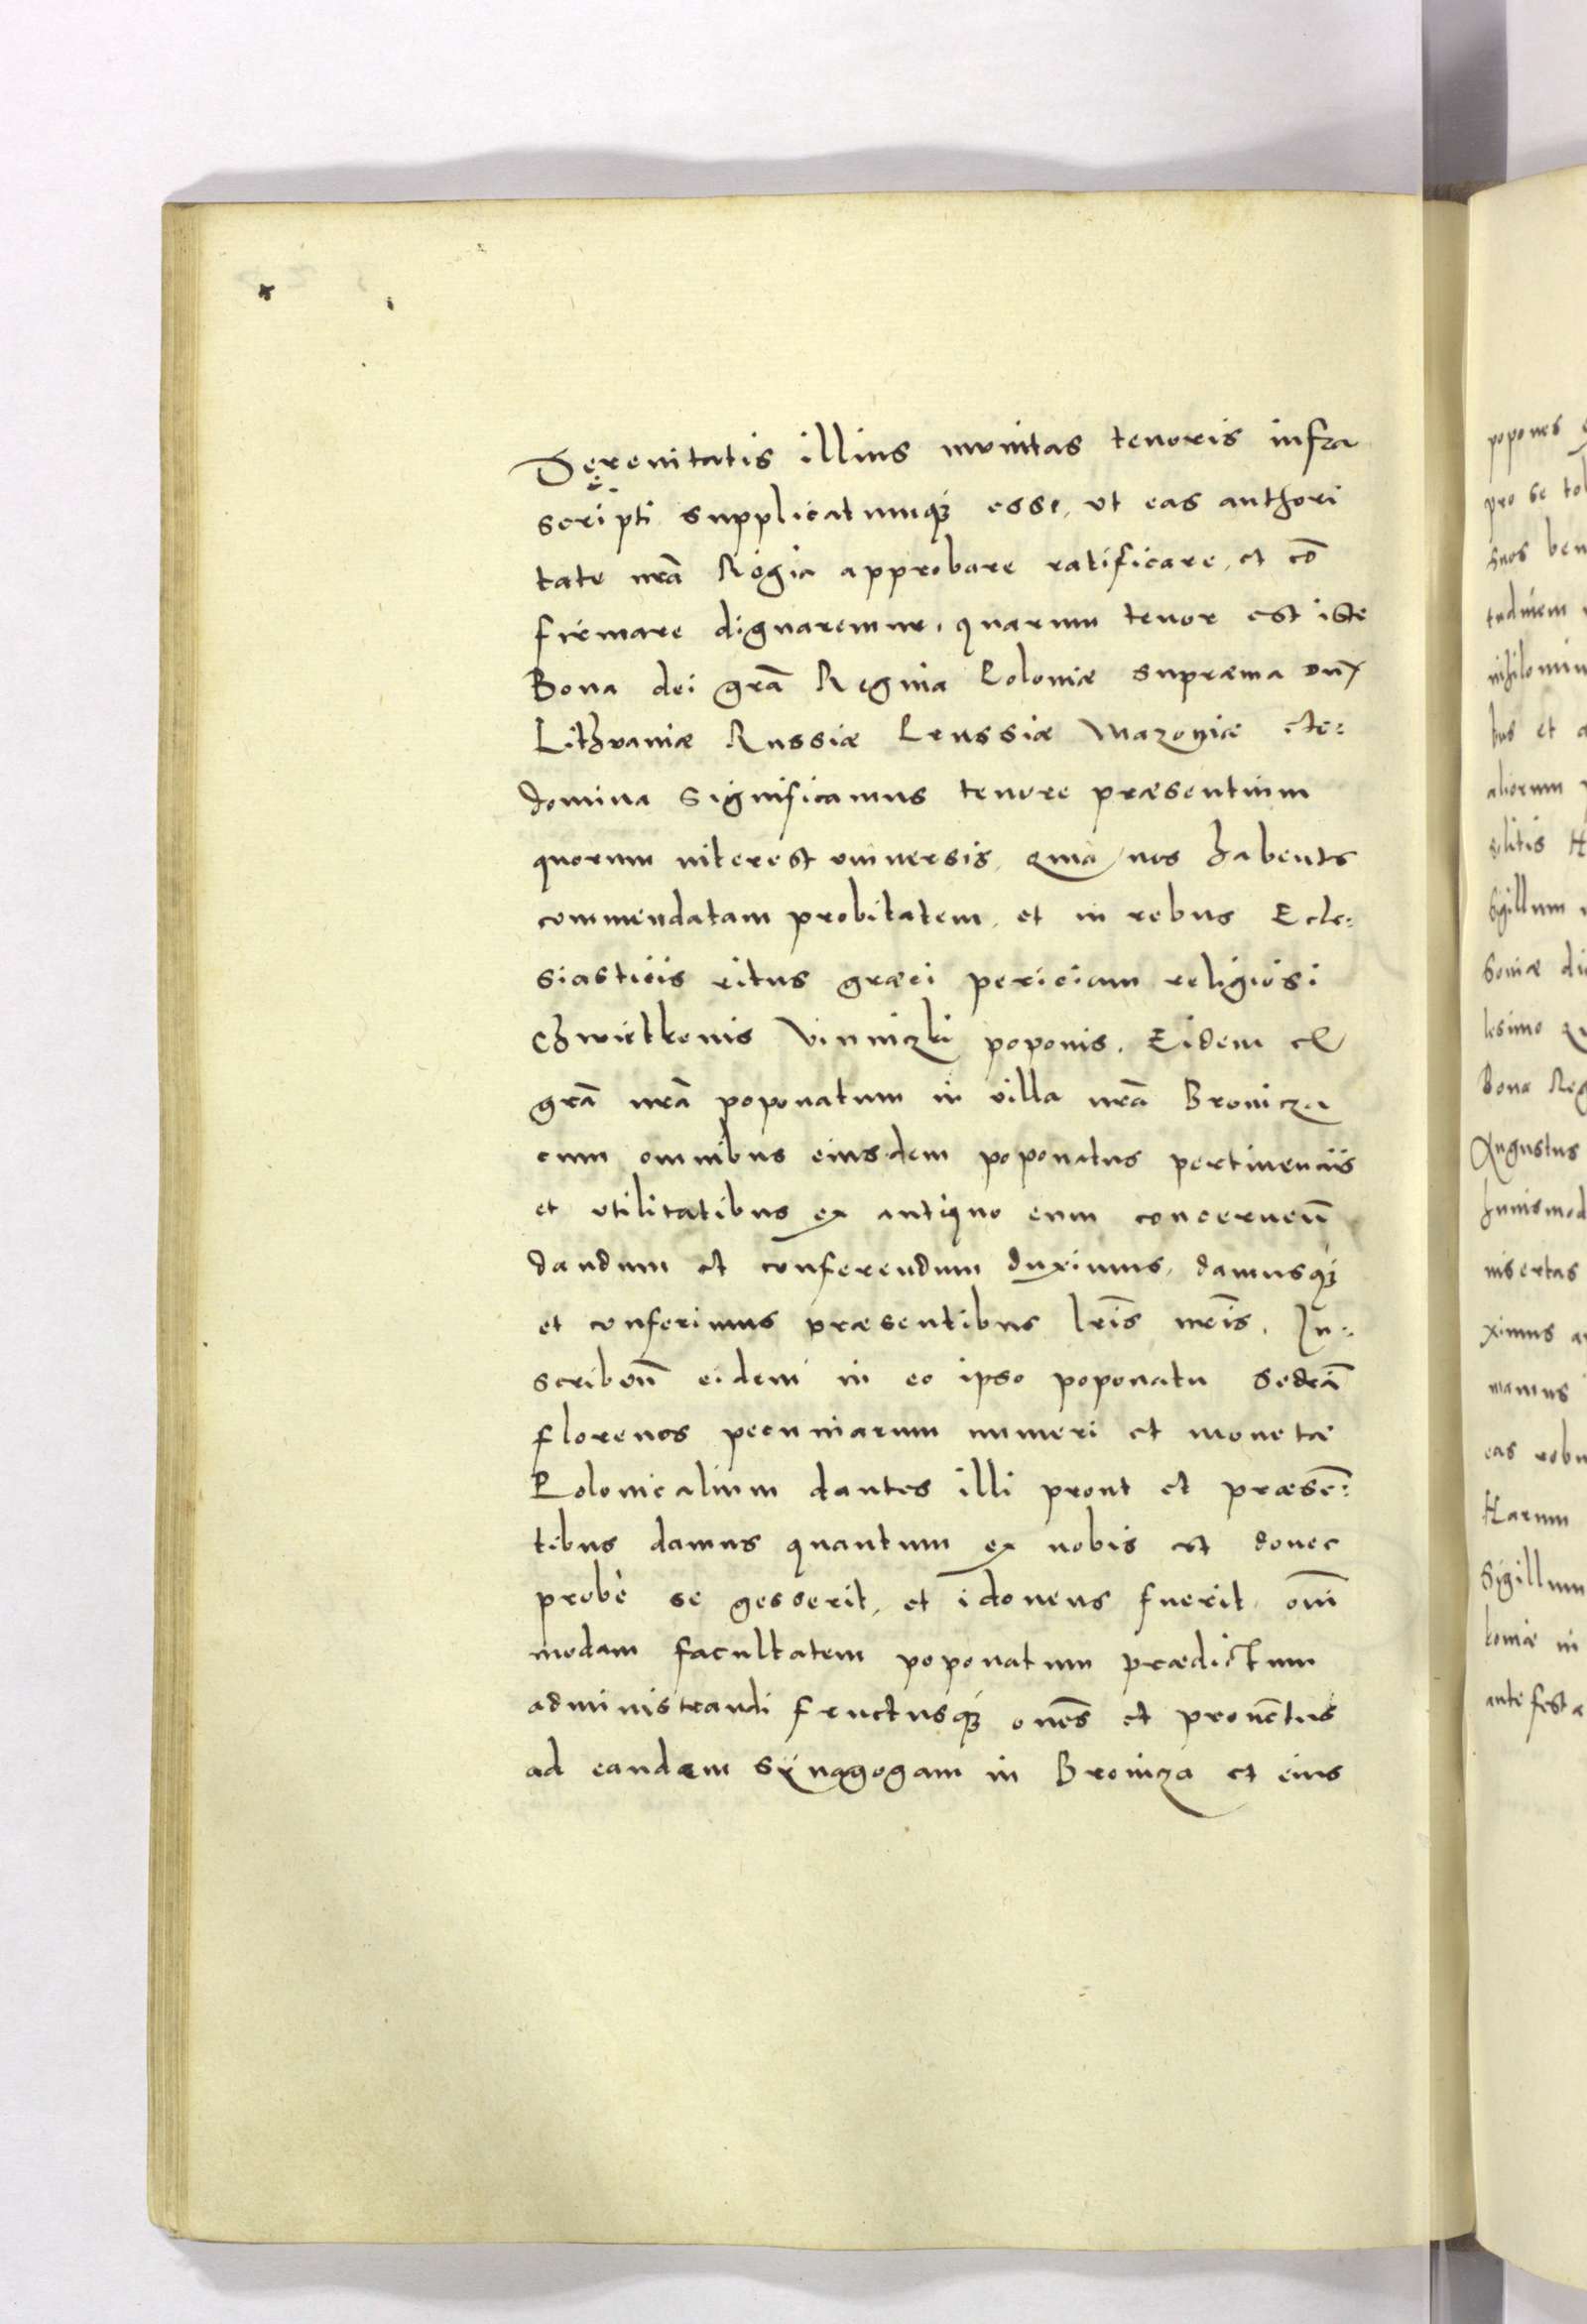 Serenitatis illius munitas tenoris infra
scripti supplicatumque esse, ut eas authori
tate nrã Regia approbare ratificare, et cõ
firmare dignaremur, quarum tenor est iste
Bona dei grã Regina Poloniæ supræma Dux
Lithvaniæ Russiæ Prussiæ Mazoviæ etc:
domina Significamus tenore præsentium
quorum interest universis, Quia nos habents
commendatam probitatem, et in rebus Ecle:
siasticis ritus græci periciam religiosi
Chwiethonis Vinniczki poponis. Eidem
grã nrã poponatum in villa nrã Bronicza
cum omnibus eiusdem poponatus pertinenciis
et utilitatibus ex antiquo eum concerneñ
dandum et conferendum duximus, damusque
et conferimus præsentibus lrĩs nrĩs. In:
scribeñ eidem in eo ipso poponatu
florenos pecuniarum numeri et monetæ
Polonicalium dantes illi prout et præsẽ:
tibus damus quantum ex nobis est donec
probè se gesserit, et idoneus fuerit, omĩ
modam facultatem poponatum prædictum
administrandi fructusque omẽs et provẽtus
ad eandem Synagogam in Bronicza et eius
popones
pro se tol
suos ben
tudinem
nihilomin
bus et a
aliorum
solitis H
Sigillum
Boniæ di
lesimo
Bona Reg
Augustus
huiusmod
insertas
ximus a
mamus
eas robu
Harum
Sigillum
loniæ in
ante festa